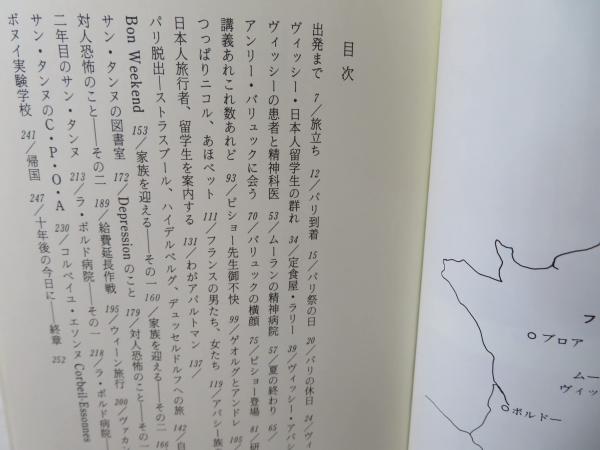 目次
出発まで 7／旅立ち 12／パリ到着 15／パリ祭の日 20／パリの休日 24／ヴィ
ヴィッシー・日本人留学生の群れ 34／定食屋・ラリー 39／ヴィッシー・アパシ
ヴィッシーの患者と精神科医 53／ムーランの精神病院 57／夏の終わり 65／
アンリー・バリュックに会う 70／バリュックの横顔 75／ピショー登場 81／研
講義あれこれ数あれど 93／ピショー先生御不快 99／ゲオルグとアンドレ 105／
つっぱりニコル、あほペット 111／フランスの男たち、女たち 119／アパシー族
日本人旅行者、留学生を案内する 131／わがアパルトマン 137／
パリ脱出——ストラスブール、ハイデルベルグ、デュッセルドルフへの旅 142／自
Bon Weekend 153／家族を迎える——その一 160／家族を迎える——その二 166
サン・タンヌの図書室 172／Depressionのこと 179／対人恐怖のこと——その一
対人恐怖のこと——その二 189／給費延長作戦 195／ウィーン旅行 200／ヴァカン
二年目のサン・タンヌ 213／ラ・ボルド病院——その一 218／ラ・ボルド病院——
サン・タンヌのC・P・O・A 230／コルベイユ・エソンヌ Corbeil-Essonnes
ボヌイ実験学校 241／帰国 247／十年後の今日に——終章 252
フ
ブロア
ムー
ヴィッ
ボルドー